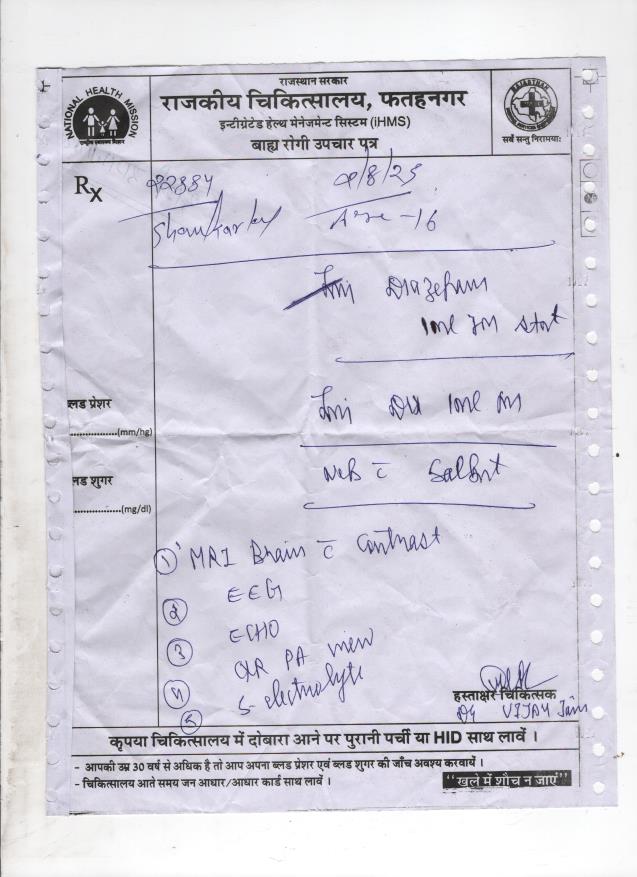 राजस्थान सरकार
राजकीय चिकित्सालय, फतहनगर
इन्टीग्रेटेड हेल्थ मेनेजमेन्ट सिस्टम (iHMS)
बाह्य रोगी उपचार पत्र
NATIONAL HEALTH MISSION
RAJASTHAN
सर्वे सन्तु निरामयाः
Rx
22884 2/8/25
Age - 16
Inj Diazepam
1ml IM stat
Inj 1ml IM
Neb c̄ Salbut
ब्लड प्रेशर
................(mm/hg)
ब्लड शुगर
................(mg/dl)
① MRI Brain c̄ Contrast
② EEG
③ ECHO
④ PA view
⑤ S. electrolyte
हस्ताक्षर चिकित्सक
Dr VIJAY Jain
कृपया चिकित्सालय में दोबारा आने पर पुरानी पर्ची या HID साथ लावें ।
- आपकी उम्र 30 वर्ष से अधिक है तो आप अपना ब्लड प्रेशर एवं ब्लड शुगर की जाँच अवश्य करवायें ।
- चिकित्सालय आते समय जन आधार/आधार कार्ड साथ लावें ।
"खुले में शौच न जाएं"